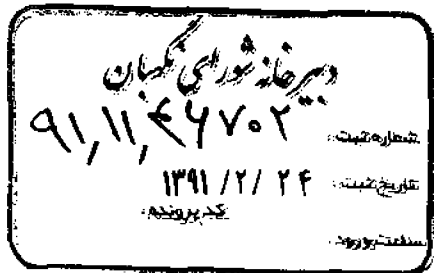 دبیرخانه شورای نگهبان
شماره ثبت: ۹۱/۱۱/۴۶۷۰۲
تاریخ ثبت: ۱۳۹۱ / ۲ / ۲۴
کد پرونده:
ساعت ورود: